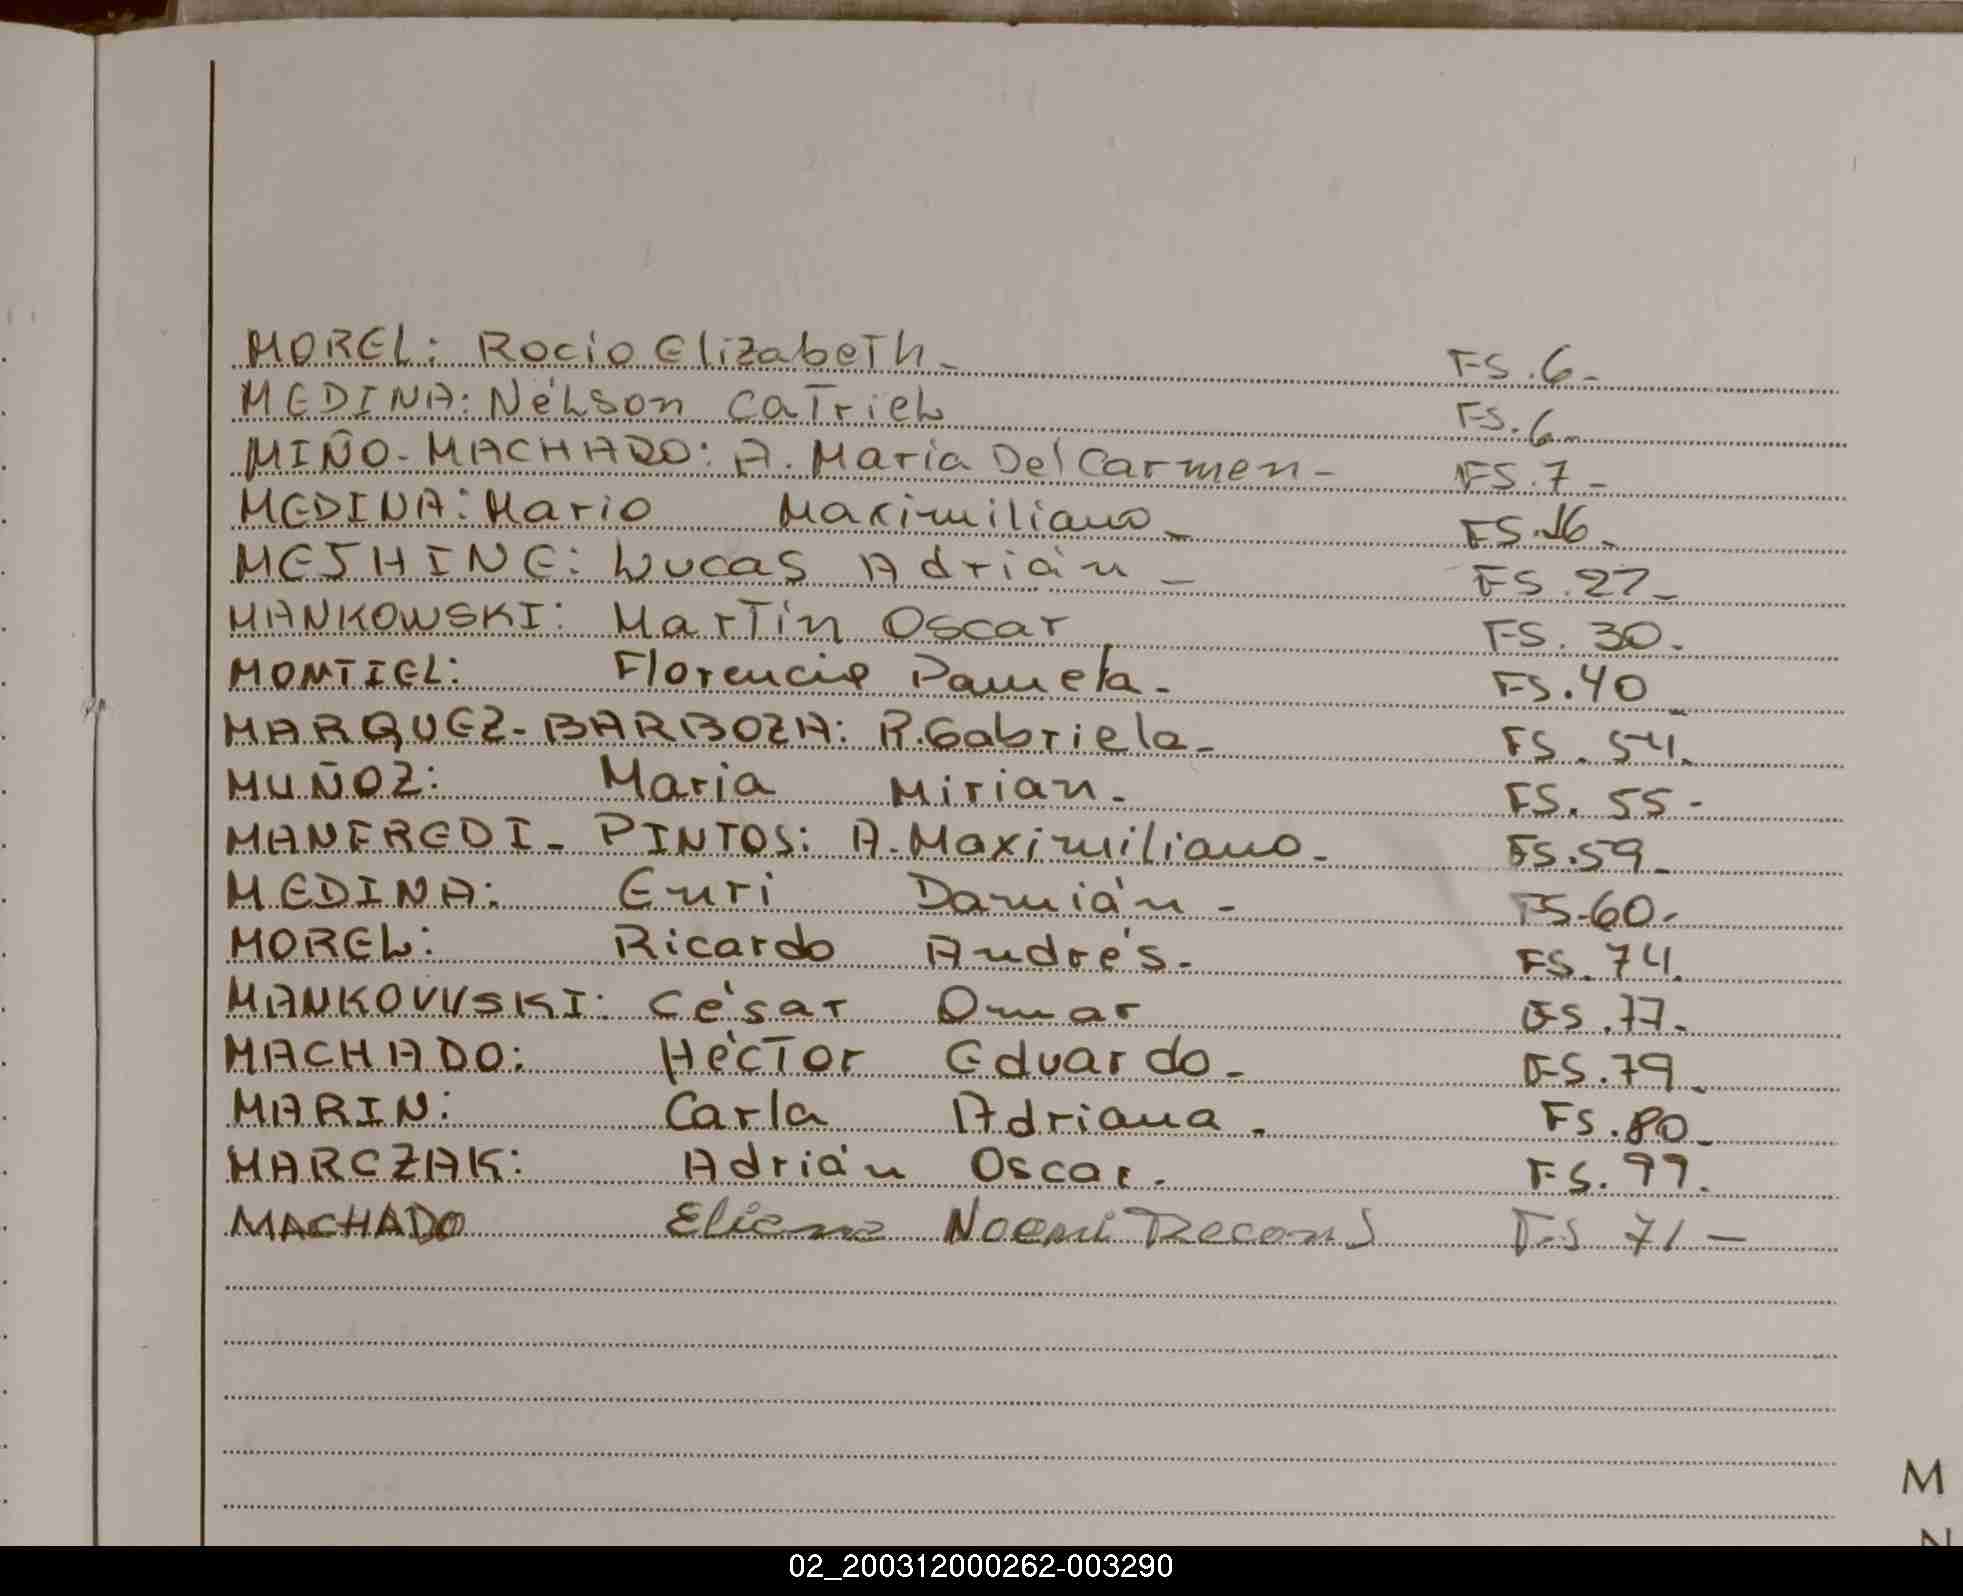 MOREL: Rocío Elizabeth- FS.6-
MEDINA: Nélson Catriel FS.6-
MIÑO-MACHADO: A. María Del Carmen- FS.7-
MEDINA: Mario Maximiliano- FS.16-
MESHINE: Lucas Adrián- FS.27-
MANKOWSKI: Martín Oscar FS. 30-
MONTIEL: Florencia Pamela- FS.40-
MARQUEZ-BARBOZA: R. Gabriela- FS. 54-
MUÑOZ: Maria Mirian- FS. 55-
MANFREDI- PINTOS: A. Maximiliano- FS.59-
MEDINA: Enri Damián- FS-60-
MOREL: Ricardo Andrés- FS. 74-
MANKOWSKI: César Omar FS.77-
MACHADO: Héctor Eduardo- FS.79-
MARIN: Carla Adriana- FS.80-
MARCZAK: Adrián Oscar- FS. 99-
MACHADO Eliana Noemi FS 71-
M
N
02_200312000262-003290